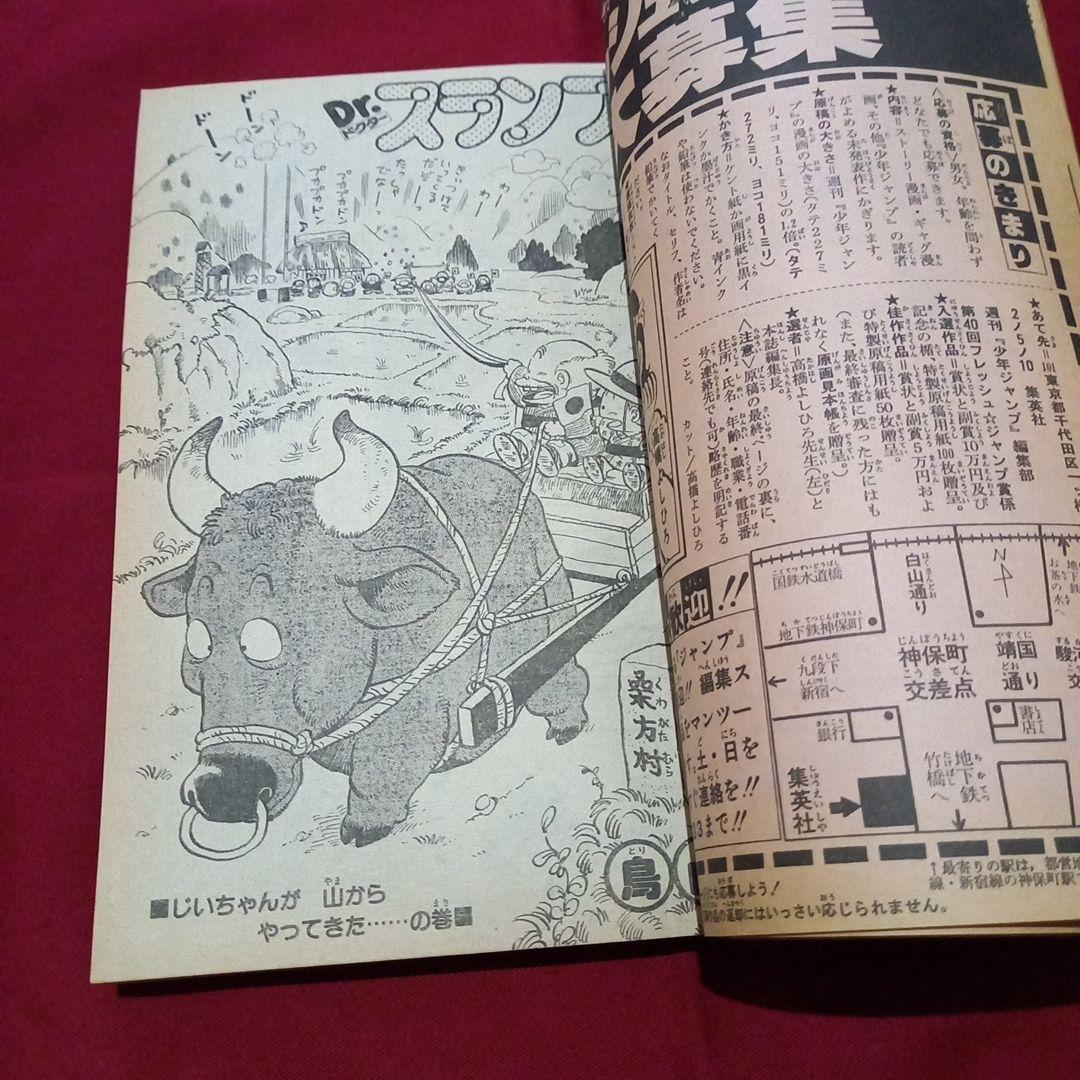 Dr.スランプ
ドクター
ドーン
ドーン
わー
わー
きぃつけて
いってくる
だぞー
たっしゃ
でなーっ
プカプカドン
プカプカドン
桑方村
くわがたむら
鳥
とり
■じいちゃんが 山から
やってきた……の巻■
募集
応募のきまり
〈応募の資格〉男女、年齢を問わず
どなたでも応募できます。
★内容=ストーリー漫画・ギャグ漫
画、その他『少年ジャンプ』の読者
がよめる未発表作にかぎります。
★原稿の大きさ=週刊『少年ジャン
プ』の漫画の大きさ(タテ227ミ
リ、ヨコ151ミリ)の1.2倍。(タテ
272ミリ、ヨコ181ミリ)
★かき方=ケント紙か画用紙に黒イ
ンクか墨汁でかくこと。青インク
や鉛筆は使わないでください。
なおタイトル、セリフ、作者名は
鉛筆でかいて
★あて先=101東京都千代田区一ツ橋
2ノ5ノ10 集英社
週刊『少年ジャンプ』編集部
第40回フレッシュ☆ジャンプ賞係
★入選作品=賞状と副賞10万円及び
記念の楯、特製原稿用紙100枚贈呈。
★佳作作品=賞状、副賞5万円およ
び特製原稿用紙50枚贈呈。
(また、最終審査に残った方にはも
れなく原画見本帳を贈呈。)
★選者=高橋よしひろ先生(左)と
本誌編集長。
〈注意〉原稿の最終ページの裏に、
住所・氏名・年齢・職業・電話番
号(連絡先でも可)略歴を明記する
こと。
カット/高橋よしひろ
高橋よしひろ
歓迎!!
『ジャンプ』
!! 編集ス
をマンツー
す。土・日を
連絡を!!
3まで!!
国鉄水道橋
地下鉄神保町
白山通り
N
地下鉄
お茶の水へ
九段下
新宿へ
神保町
交差点
靖国通り
駿河
交
銀行
書店
集英社
竹橋へ
地下鉄
↑最寄りの駅は、都営地
線・新宿線の神保町駅で
にも応募しよう!
作品の返却にはいっさい応じられません。